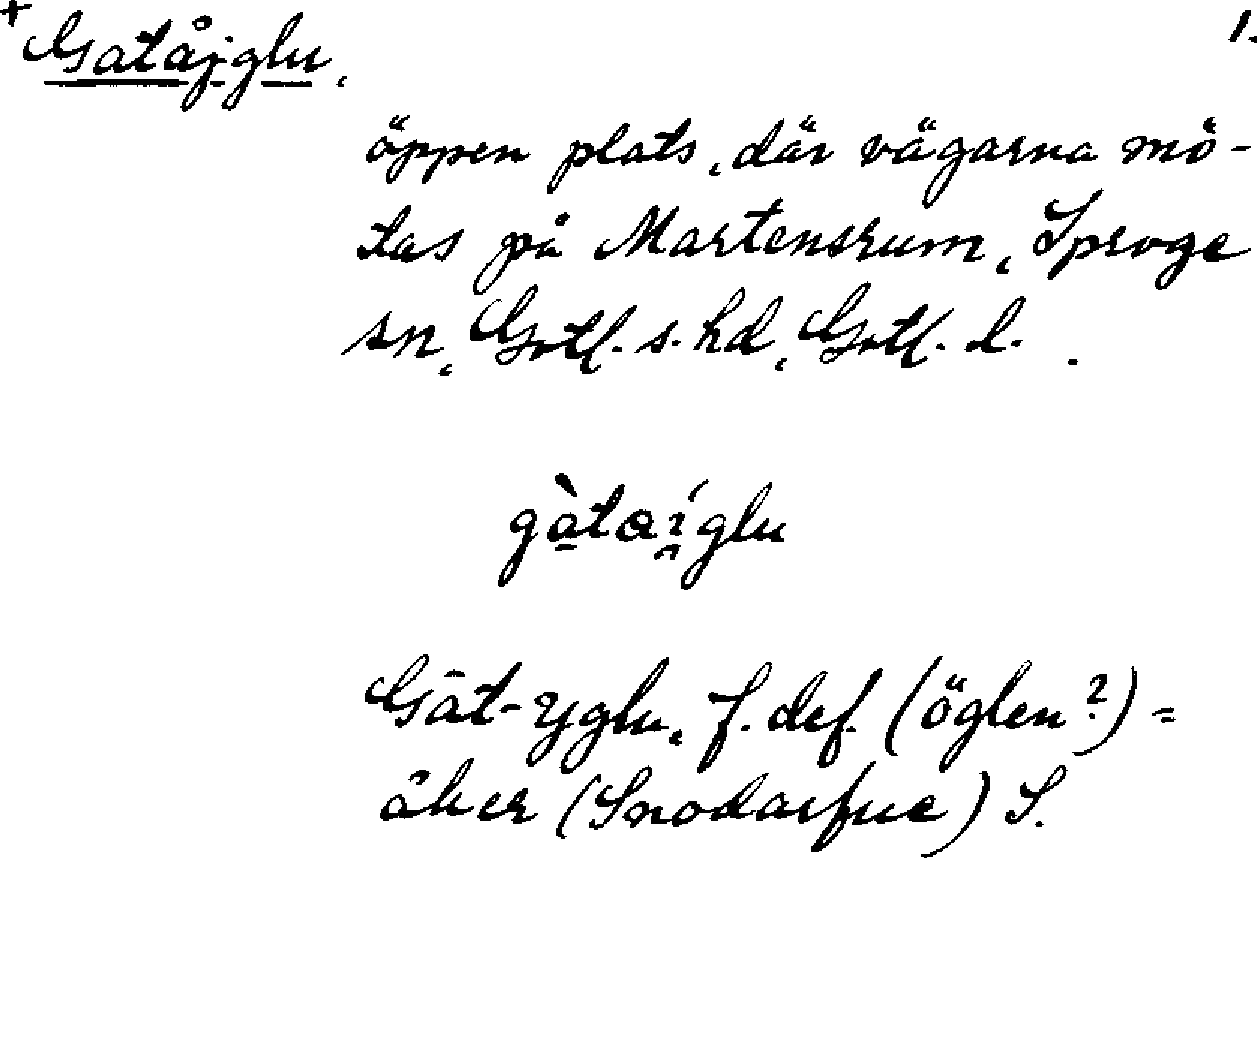 + Gatåjglu, 1.
öppen plats, där vägarna mö-
tas på Martensrum, Sproge
sn, Gotl. s. hd, Gotl. l.
gàtaíglu
Gāt-yglu, f. def. (öglen?) =
åker (Snodarfue) S.